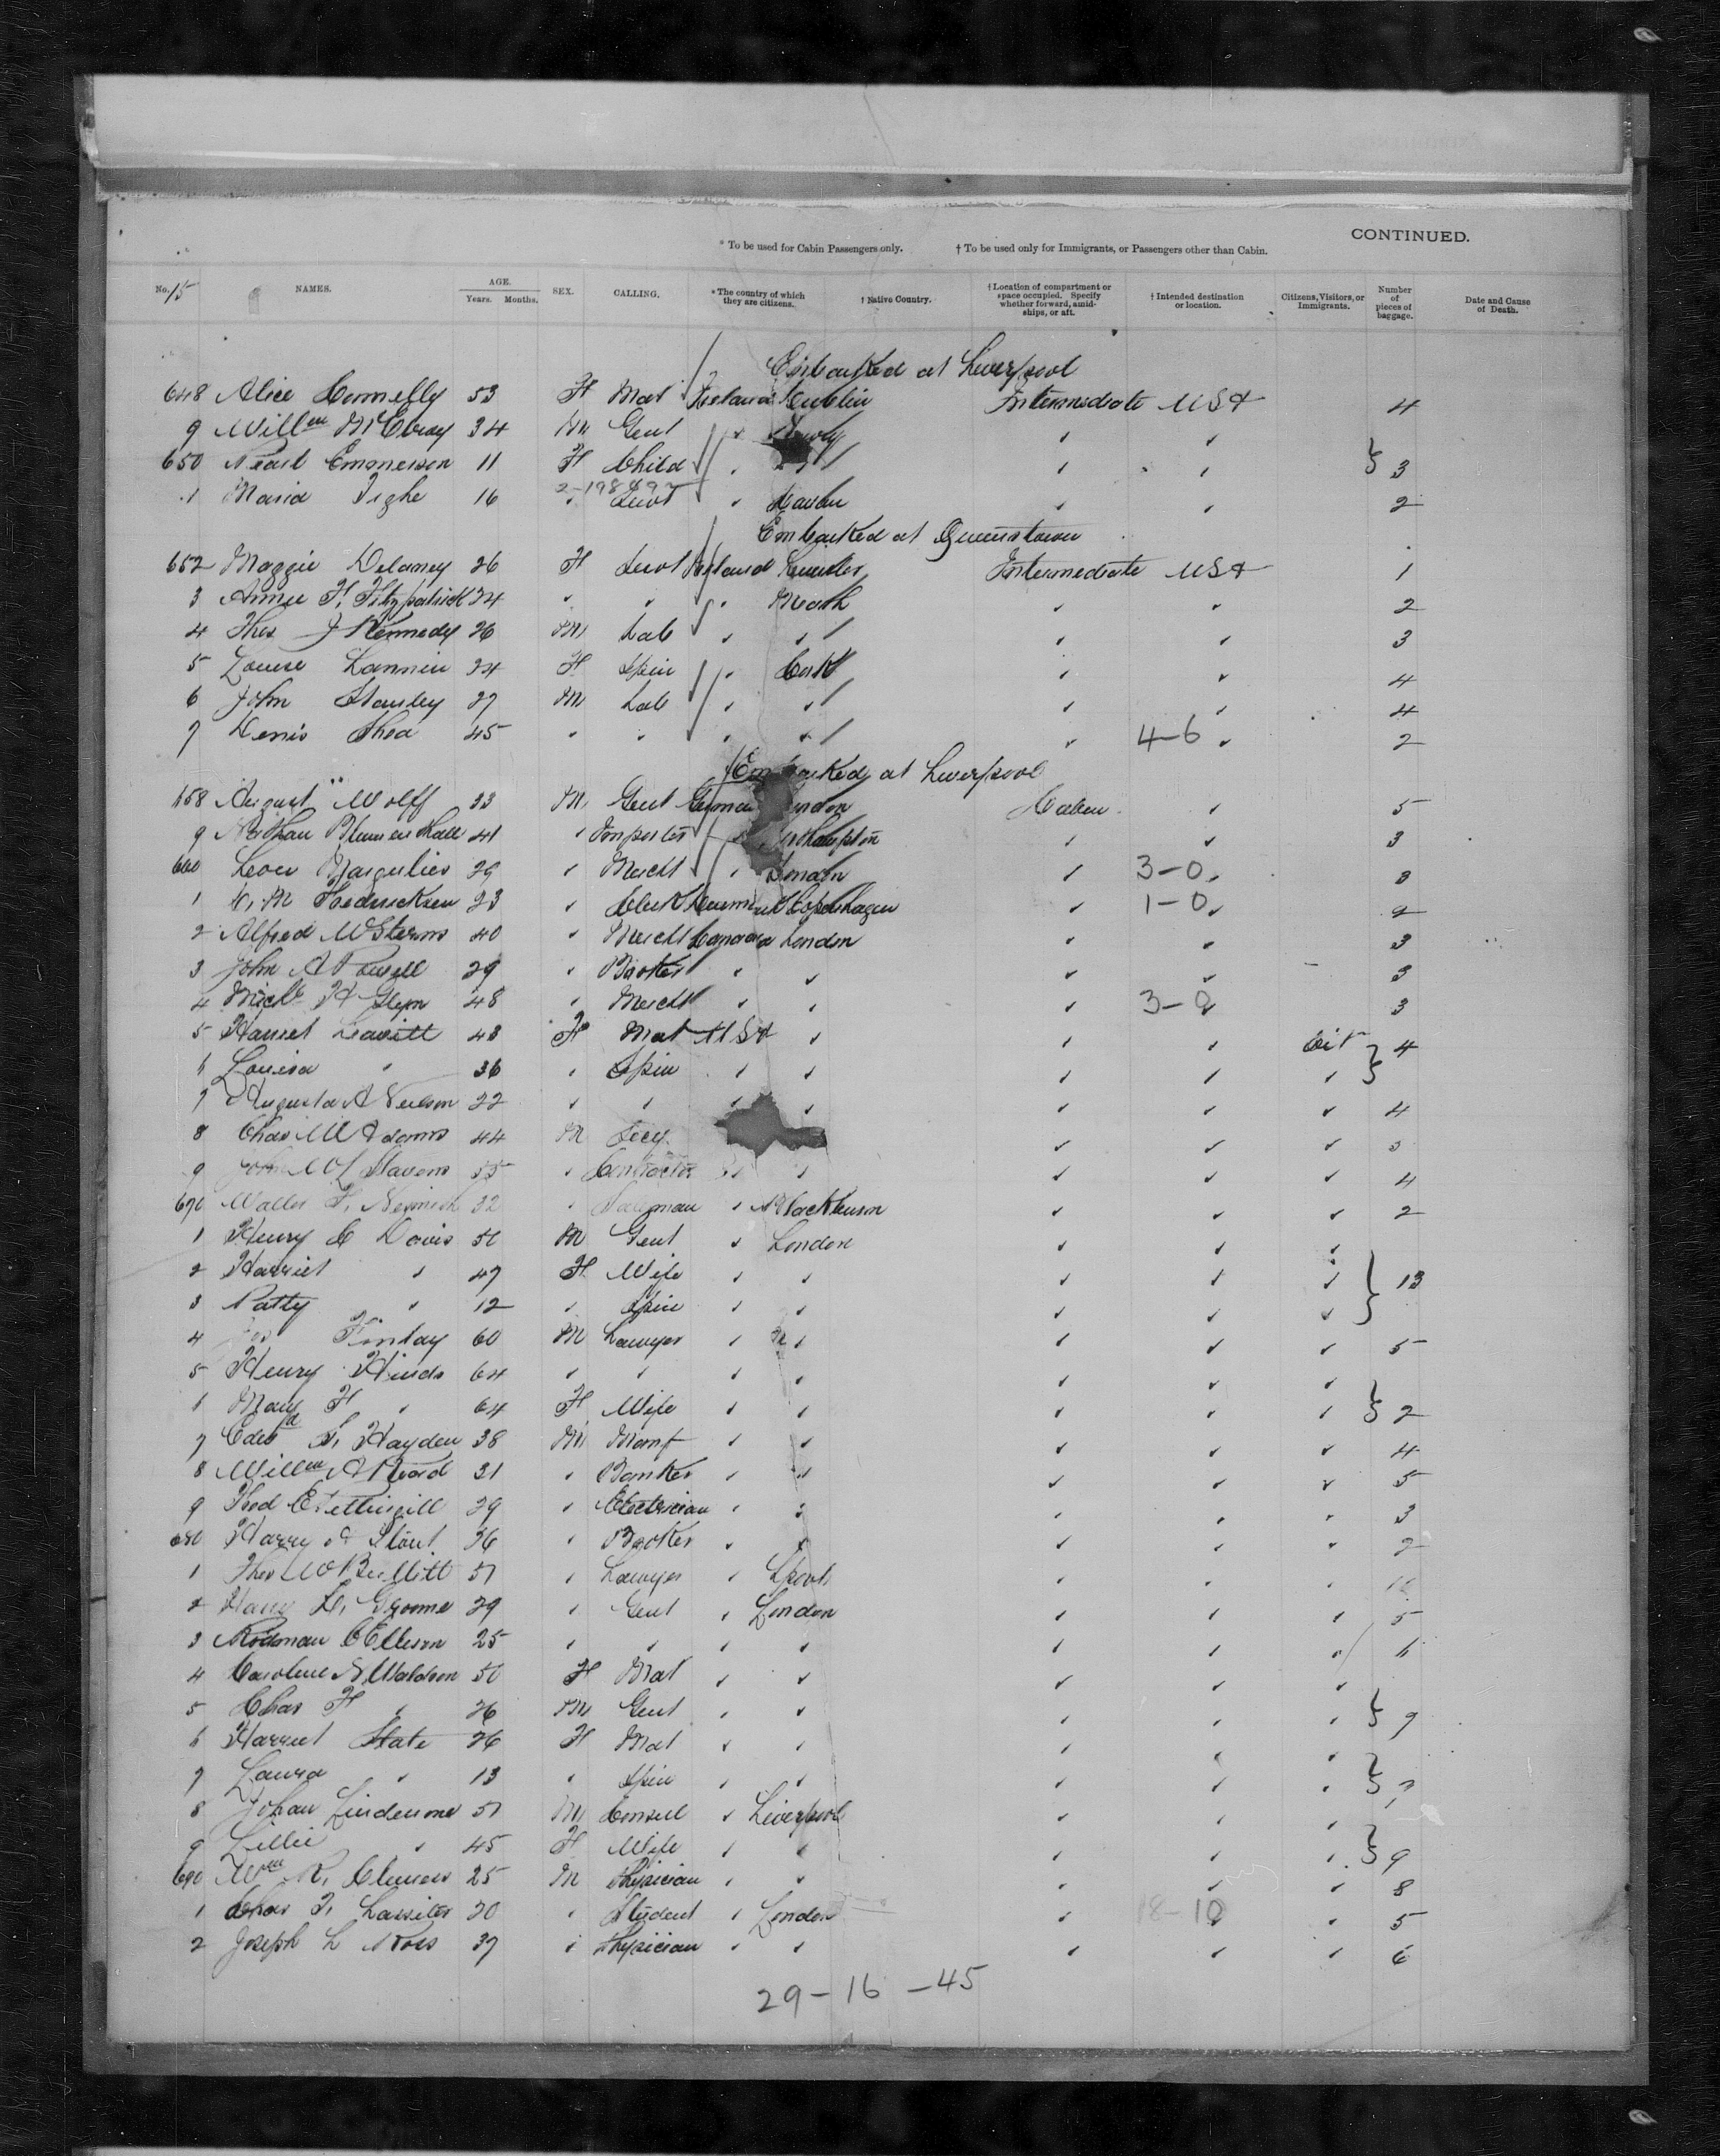 CONTINUED.
* To be used for Cabin Passengers only. † To be used only for Immigrants, or Passengers other than Cabin.
No. 15 NAMES. AGE. Years. Months. SEX. CALLING. * The country of which they are citizens. † Native Country. † Location of compartment or space occupied. Specify whether forward, amidships, or aft. † Intended destination or location. Citizens, Visitors, or Immigrants. Number of pieces of baggage. Date and Cause of Death.
Embarked at Liverpool
648 Alice Connelly 53 F Mat Ireland Dublin Intermediate USA 4
9 Willm McElroy 34 M Gent " " "
650 Pearl Emmerson 11 F Child " " " } 3
2-198497
1 Maria Tighe 16 " Servt " Cavan " " 2
Embarked at Queenstown
652 Maggie Delaney 26 F Servt Ireland Intermediate USA 1
3 Annie F. Fitzpatrick 24 " " " Meath " " 2
4 Thos J Kennedy 26 M Lab " " " " 3
5 Louise Lannin 24 F Spin " Cork " " 4
6 John Stanley 27 M Lab " " " " 4
7 Denis Shea 45 " " " " " 4-6 " 2
Embarked at Liverpool
658 August Wolff 33 M Gent German London Cabin " 5
9 Nathan Blumenthall 41 " Importer " " " 3
660 Leon Margulies 29 " Mercht " London " 3-0 " 3
1 Frederickson 23 " Clerk Denmark Copenhagen " 1-0 " 2
2 Alfred W Sterns 40 " Mercht Canada London " " 3
3 John A Powell 29 " " " " " 3
4 H Glyn 48 " Mercht " " " 3-0 3
5 Harriet Leavitt 48 F Mat USA " " " Cit } 4
6 Louisa " 36 " Spin " " " " "
7 Augusta A Neilson 22 " " " " " " " 4
8 Chas W Adams 44 M Secy " " "
9 John Stavens 55 " Contractor " " " " " 4
670 Walter F. 32 " Salesman " Blackburn " " " 2
1 Henry C Davis 50 M Gent " London " " "
2 Harriet " 47 F Wife " " " " " } 13
3 Patty " 12 " Spin " " " " "
4 Finlay 60 M Lawyer " " " " " 5
5 Henry Hinds 64 " " " " " " "
6 Mary F " 64 F Wife " " " " " } 2
7 Edwd S. Hayden 38 M Manf " " " " " 4
8 Willm A Read 31 " Banker " " " " " 5
9 Fred E Pettingill 29 " Electrician " " " " " 3
680 Harry A Stout 36 " " " " " " 2
1 Thos W Bullitt 51 " Lawyer " Lpool " " "
2 Harry L. Groome 29 " Gent " London " " " 5
3 Rodman E Ellison 25 " " " " " " " 6
4 Caroline N Waldron 50 F Mat " " " " "
5 Chas F " 26 M Gent " " " " " } 9
6 Harriet State 26 F Mat " " " " "
7 Laura " 13 " Spin " " " " " }
8 Johan 51 M Consul " Liverpool " " "
9 Lillie " 45 F Wife " " " " " } 9
690 Wm R. 25 M Physician " " " " " 8
1 Chas T. Lassiter 20 " Student " London " 18-10 " 5
2 Joseph L Ross 37 " Physician " " " " " 6
29-16-45